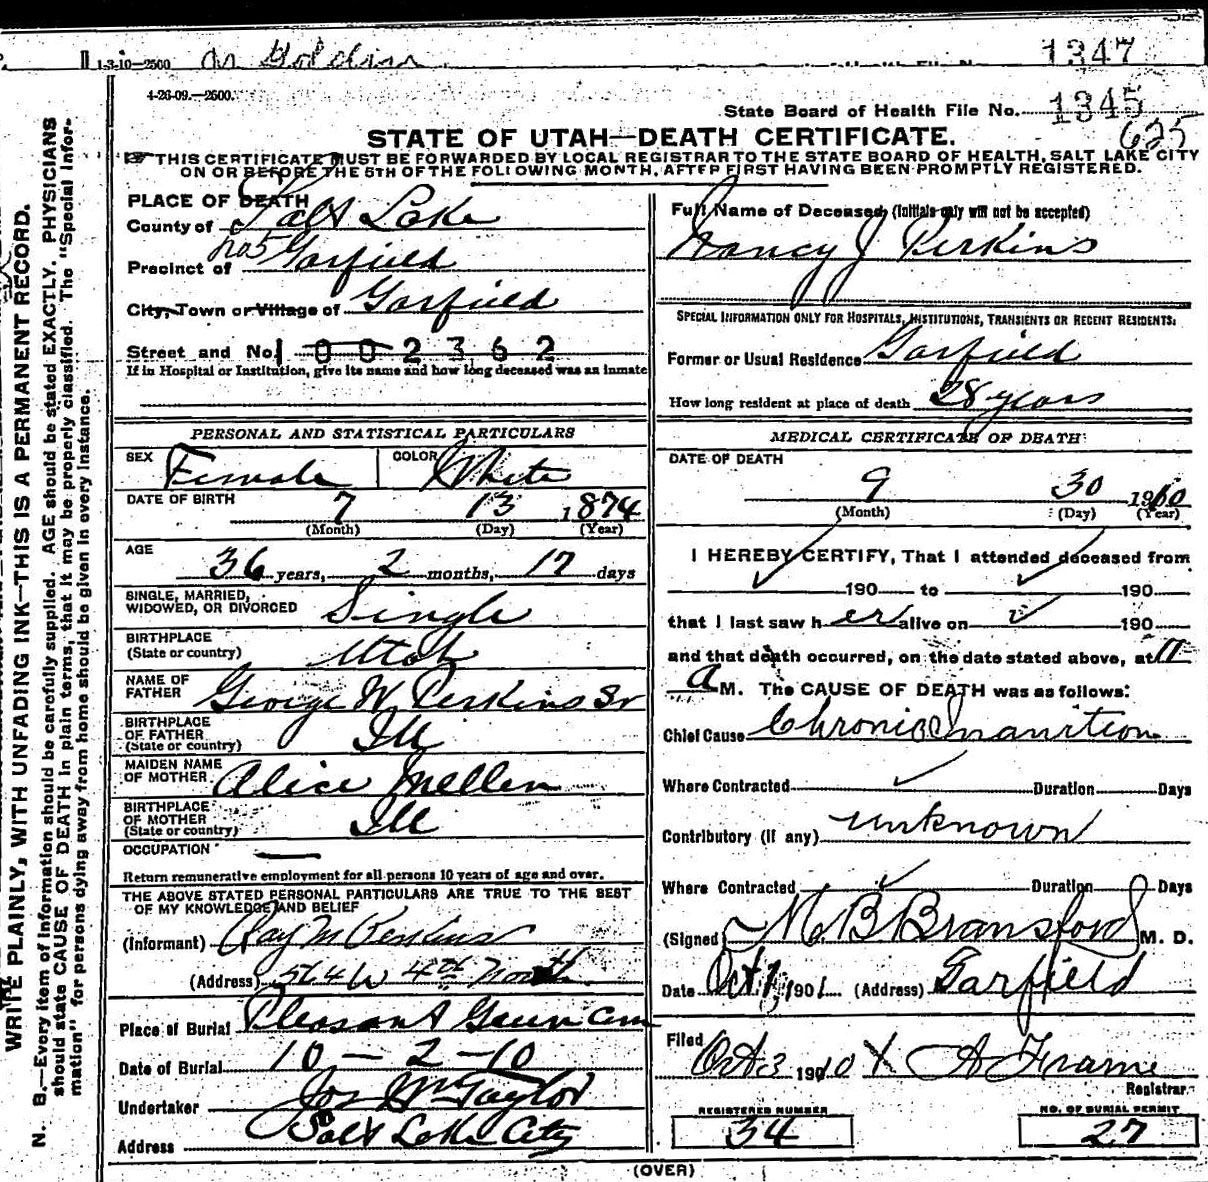 1-3-10-2500
1347
4-26-09.—2500.
State Board of Health File No. 1345
625
STATE OF UTAH—DEATH CERTIFICATE.
THIS CERTIFICATE MUST BE FORWARDED BY LOCAL REGISTRAR TO THE STATE BOARD OF HEALTH, SALT LAKE CITY
ON OR BEFORE THE 5TH OF THE FOLLOWING MONTH, AFTER FIRST HAVING BEEN PROMPTLY REGISTERED.
WRITE PLAINLY, WITH UNFADING INK—THIS IS A PERMANENT RECORD.
N. B.—Every item of information should be carefully supplied. AGE should be stated EXACTLY. PHYSICIANS
should state CAUSE OF DEATH in plain terms, that it may be properly classified. The "Special Infor-
mation" for persons dying away from home should be given in every instance.
PLACE OF DEATH
County of Salt Lake
no 5
Precinct of Garfield
City, Town or Village of Garfield
Street and No. 1 0 0 2 3 6 2
If in Hospital or Institution, give its name and how long deceased was an inmate
PERSONAL AND STATISTICAL PARTICULARS
SEX Female COLOR White
DATE OF BIRTH 7 13 1874
(Month) (Day) (Year)
AGE
36 years, 2 months, 17 days
SINGLE, MARRIED,
WIDOWED, OR DIVORCED Single
BIRTHPLACE
(State or country) Utah
NAME OF
FATHER George W. Perkins Sr
BIRTHPLACE
OF FATHER
(State or country) Ill
MAIDEN NAME
OF MOTHER Alice Mellen
BIRTHPLACE
OF MOTHER
(State or country) Ill
OCCUPATION —
Return remunerative employment for all persons 10 years of age and over.
THE ABOVE STATED PERSONAL PARTICULARS ARE TRUE TO THE BEST
OF MY KNOWLEDGE AND BELIEF
(Informant) Ray M Perkins
(Address) 564 W 4th North
Place of Burial Pleasant Green Cem
Date of Burial 10 — 2 — 10
Undertaker Jos Wm Taylor
Address Salt Lake City
Full Name of Deceased, (Initials only will not be accepted)
Nancy J Perkins
SPECIAL INFORMATION ONLY FOR HOSPITALS, INSTITUTIONS, TRANSIENTS OR RECENT RESIDENTS:
Former or Usual Residence Garfield
How long resident at place of death 28 years
MEDICAL CERTIFICATE OF DEATH
DATE OF DEATH
9 30 1910
(Month) (Day) (Year)
I HEREBY CERTIFY, That I attended deceased from
190 to 190
that I last saw her alive on 190
and that death occurred, on the date stated above, at 11
a M. The CAUSE OF DEATH was as follows:
Chief Cause Chronic Inanition
Where Contracted Duration Days
Contributory (if any) unknown
Where Contracted Duration Days
(Signed) M. B. Bransford M. D.
Date Oct 1, 1901 (Address) Garfield
Filed Oct 3 1910 X A Frame
Registrar.
REGISTERED NUMBER
34
NO. OF BURIAL PERMIT
27
(OVER)